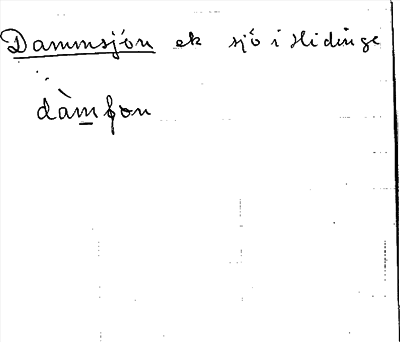 Dammsjön ek sjö i Hidinge
dàmfon